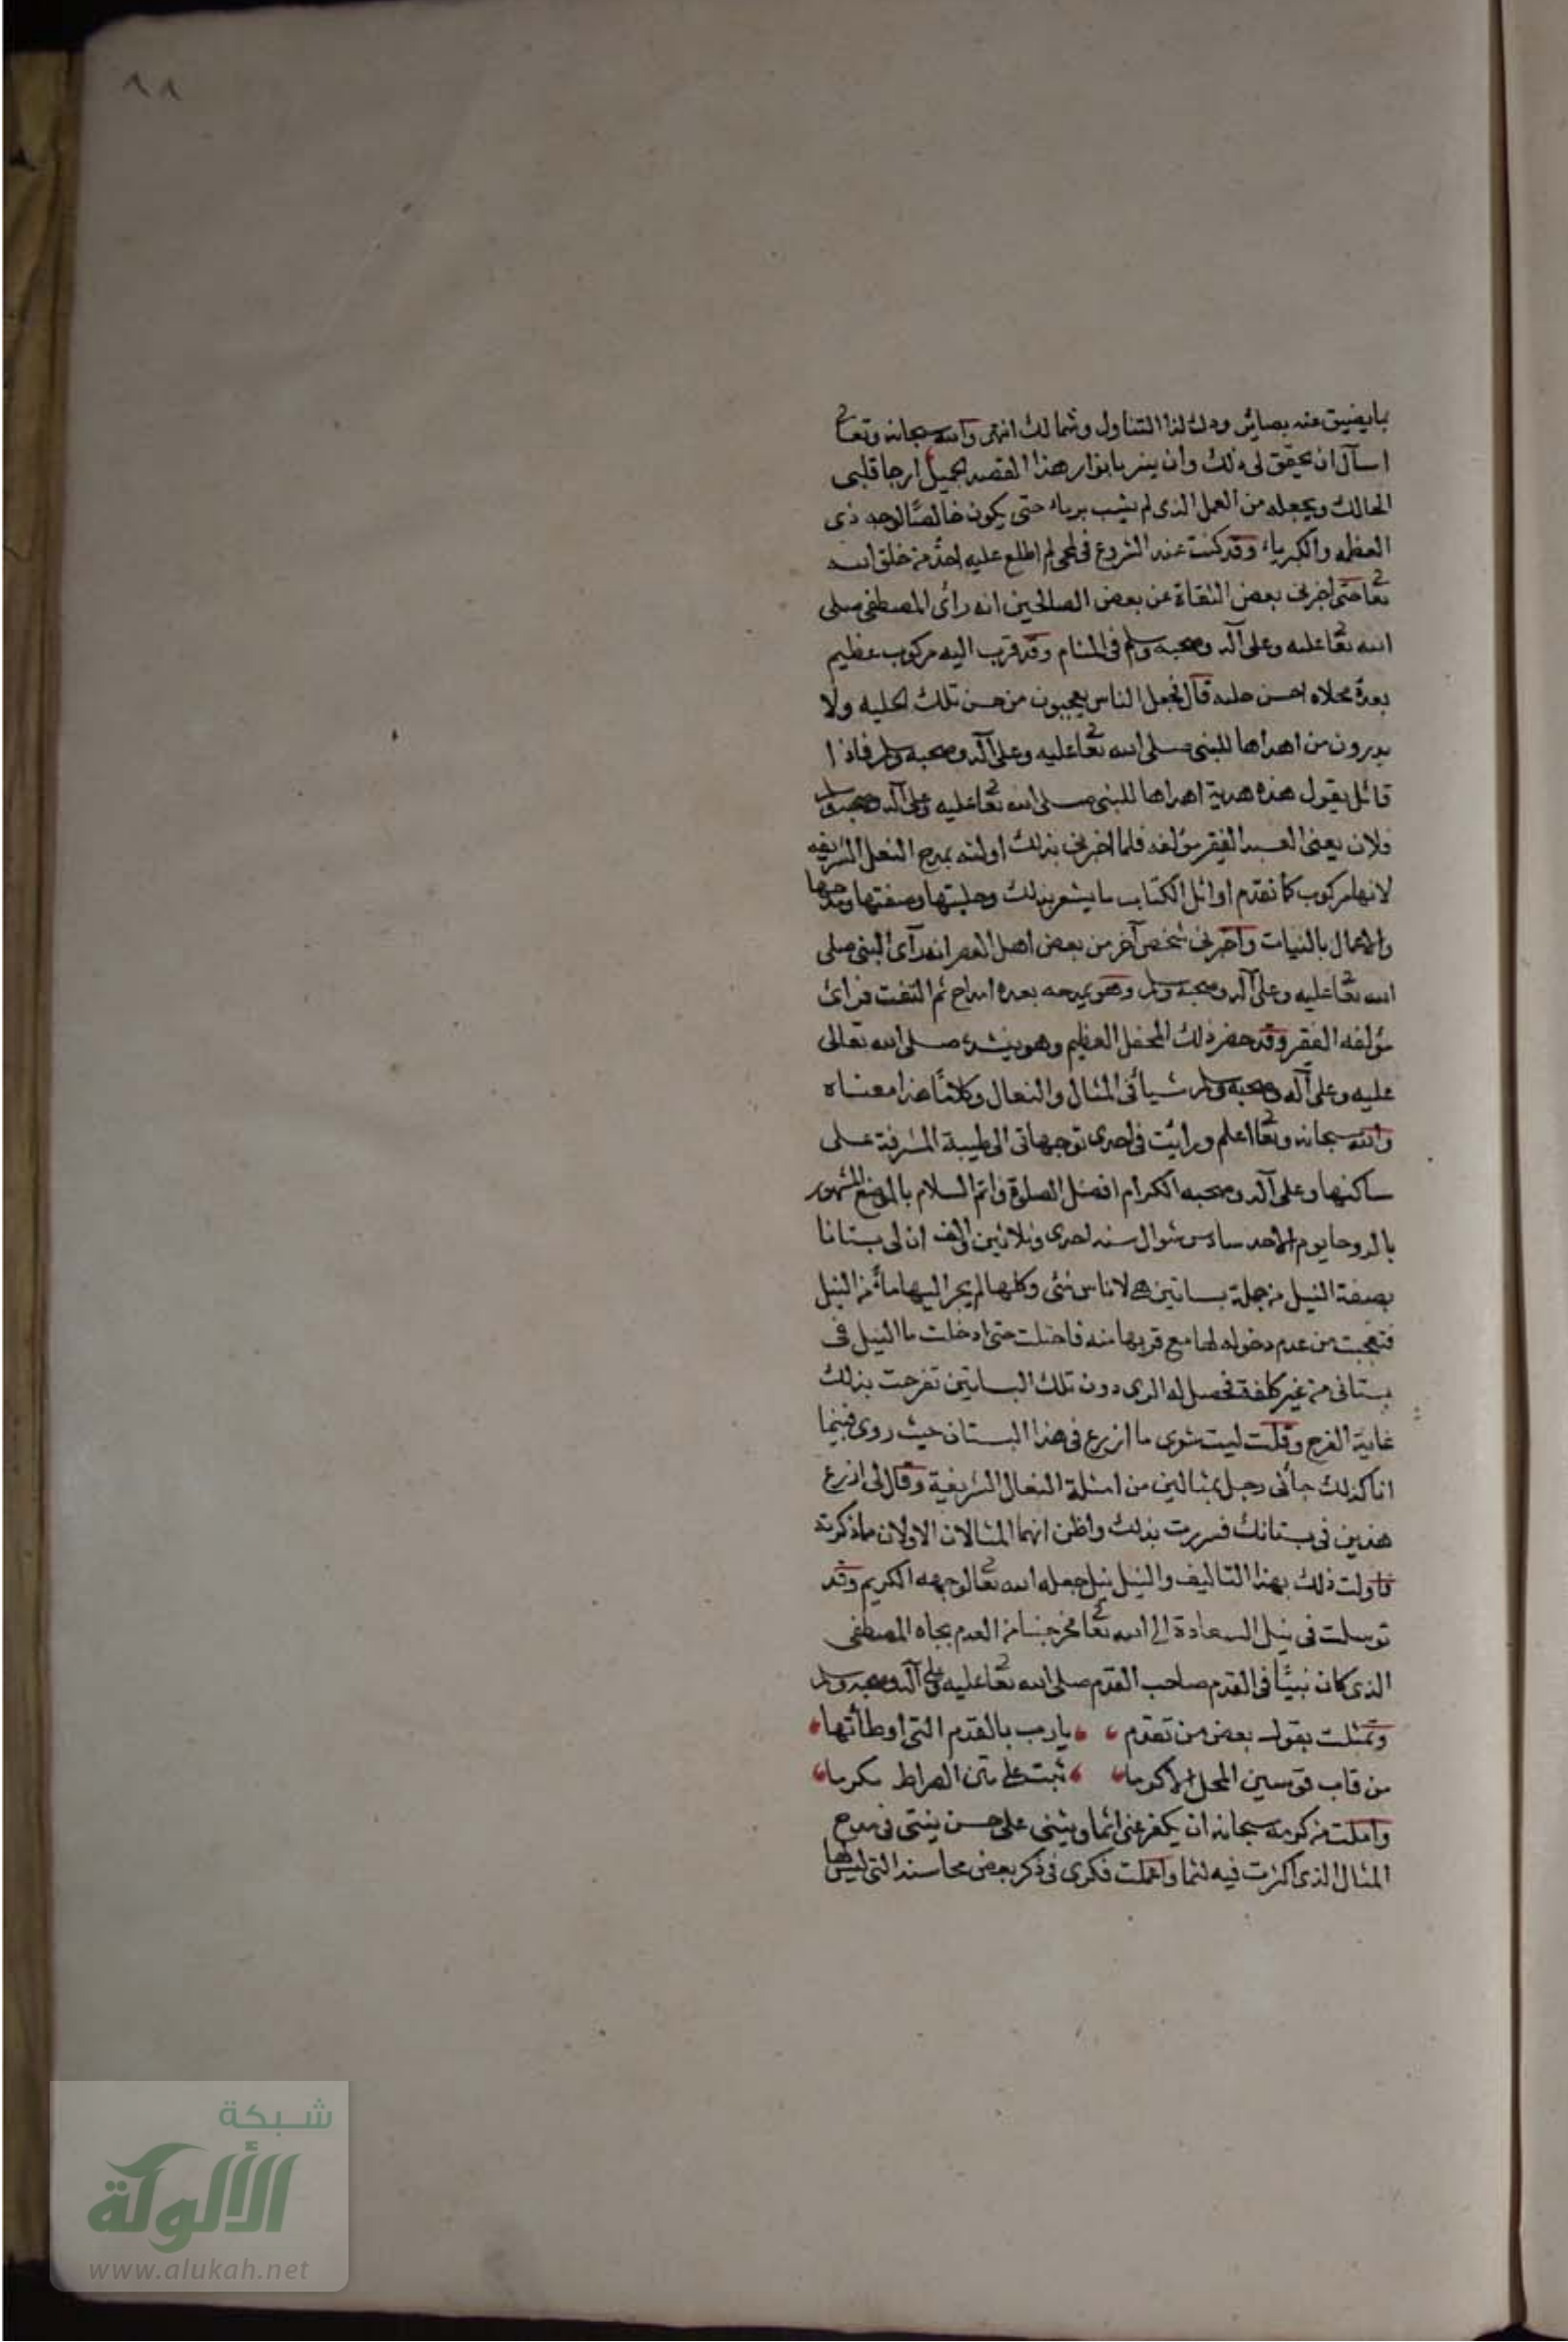 ٩٨
بما يضيق عنه بصائر ودك لذا التناول وشمالك انتهى والله سبحانه وتعالى
اسأل ان يحقق لى ذلك وان ينير بانوار هذا القصد الجميل ارجا قلبى
الحالك ويجعله من العمل الذى لم يشب برياء حتى يكون خالصًا لوجه ذى
العظمه والكبرياء وقد كنت عند الشروع فى لم اطلع عليه احدٌ من خلق الله
تعالى حتى اخبرنى بعض الثقاة عن بعض الصالحين انه رأى المصطفى صلى
الله تعالى عليه وعلى آله وصحبه وسلم فى المنام وقد قرب اليه مركوب عظيم
بعدة محلاه احسن حليه قال فجعل الناس يعجبون من حسن تلك الحليه ولا
يدرون من اهداها للنبى صلى الله تعالى عليه وعلى آله وصحبه وسلم فاذا
قائل يقول هذه هدية اهداها للنبى صلى الله تعالى عليه وعلى آله وصحبه وسلم
فلان يعنى العبد الفقير مؤلفه فلما اخبرنى بذلك اولته بمدح النعل الشريفه
لانها مركوب كما تقدم اوائل الكتاب ما يشعر بذلك وحليتها وصفتها ومدحها
والاعمال بالنيات واخبرنى شخص آخر من بعض اهل العصر انه رآى النبى صلى
الله تعالى عليه وعلى آله وصحبه وسلم وهو يمدحه بعده امداح ثم التفت فرأى
مؤلفه الفقير وقد حضر ذلك المحفل العظيم وهو ينشده صلى الله تعالى
عليه وعلى آله وصحبه وسلم شيأ فى المثال والنعال وكلامًا هذا معناه
والله سبحانه وتعالى اعلم ورأيت فى احدى توجهاتى الى طيبة المشرفة على
ساكنها وعلى آله وصحبه الكرام افضل الصلوة واتم السلام بالموضع المشهور
بالروحا يوم الاحد سادس شوال سنه احدى وثلاثين والف ان لى بستانا
بضفة النيل من جملة بساتين هى لاناس شتى وكلها لم يجر اليها ماء من النيل
فتعجبت من عدم دخوله لها مع قربها منه فاحتلت حتى ادخلت ما النيل فى
بستانى من غير كلفة فحصل له الرى دون تلك البساتين ففرحت بذلك
غاية الفرح وقلت ليت شعرى ما ازرع فى هذا البستان حيث روى فبينما
انا كذلك جأنى رجل بمثالين من امثلة النعال الشريفة وقال لى ازرع
هذين فى بستانك فسررت بذلك واظن انهما المثالان الاولان مما ذكرته
فاولت ذلك بهذا التاليف والنيل نيل جعله الله تعالى لوجهه الكريم وقد
توسلت فى نيل السعادة الى الله تعالى مخرجنا من العدم بجاه المصطفى
الذى كان نبيًّا فى القدم صاحب القدم صلى الله تعالى عليه وعلى آله وصحبه وسلم
وتمثلت بقول بعض من تقدم يارب بالقدم التى اوطأتها
من قاب قوسين المحل الاكرما ثبت على متن الصراط مكرما
واملت من كرمه سبحانه ان يكفر عنى اثما ويثنى على حسن نيتى فى مدح
المثال الذى اكثرت فيه لثما واعملت فكرى فى ذكر بعض محاسنه التى ليس لها
شبكة
الألوكة
www.alukah.net